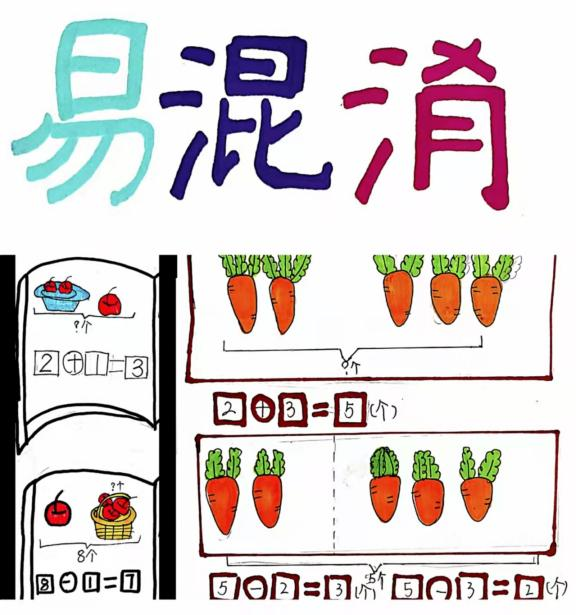 易混淆
?个
2+1=3
?个
8个
8-1=7
?个
2+3=5(个)
5个
5-2=3(个) 5-3=2(个)